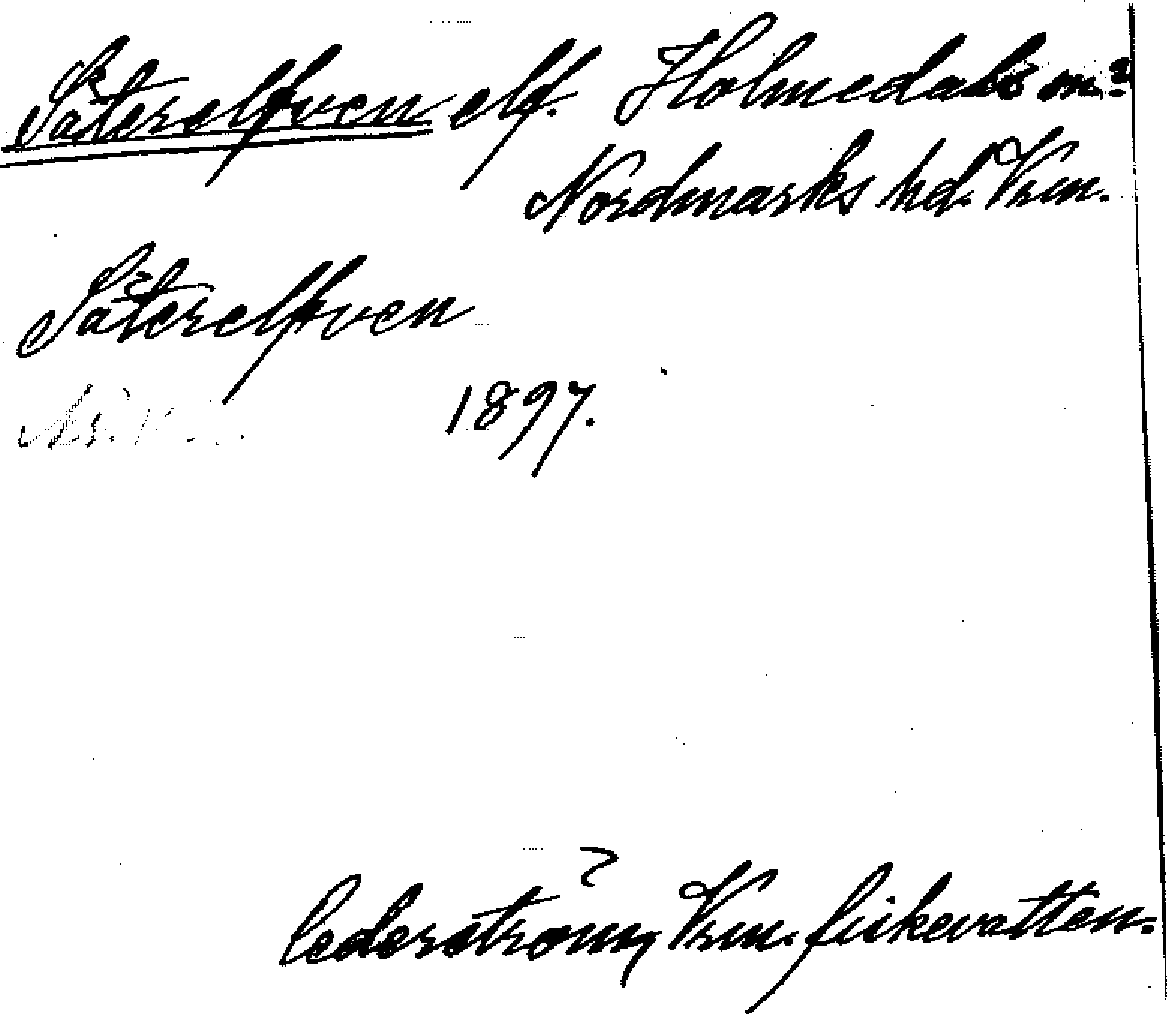 Säterelfven elf. Holmedals
Nordmarks hd. Vrm.
Säterelfven
1897.
Cederström, Vrm. fiskevatten.